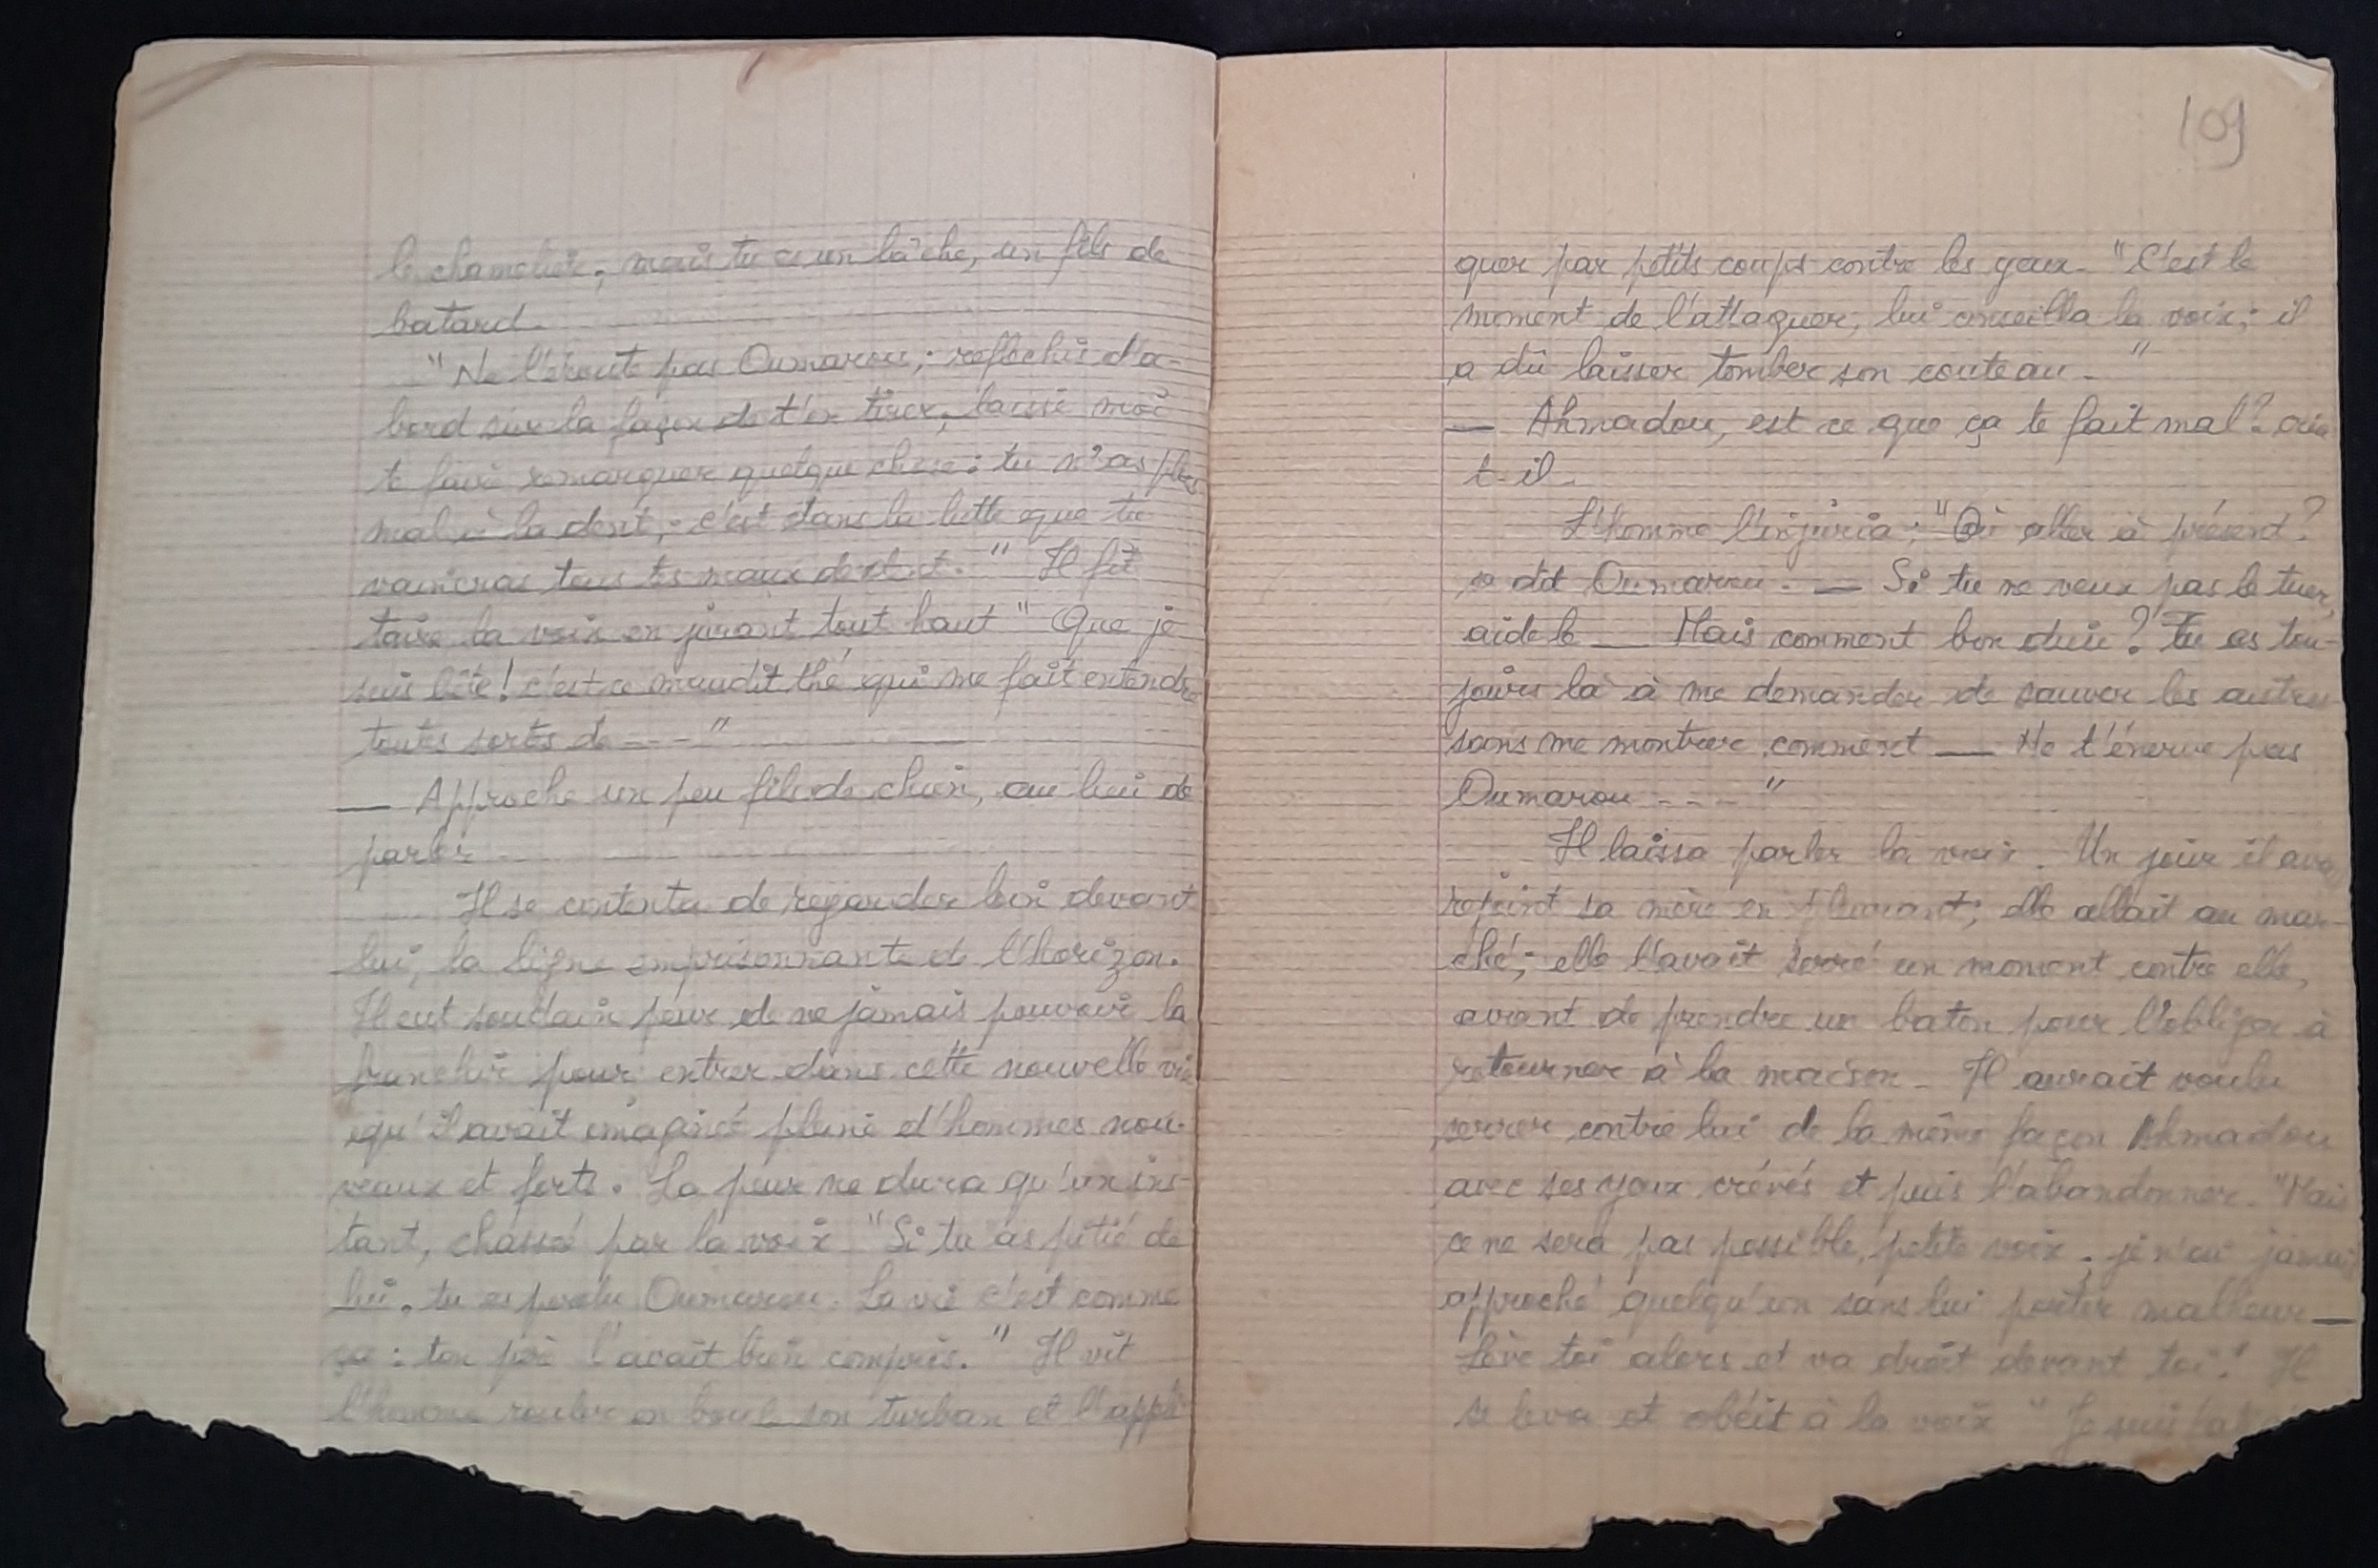 le chamelier, mais tu es un lâche, un fils de
batard.
"Ne l'écoute pas Oumarou; reflechis d'a-
bord sur la façon de t'en tirer, laisse moi
te faire remarquer quelque chose: tu n'as plus
mal à la dent; c'est dans la lutte que tu
vaincras tous tes maux de dent." Il fit
taire la voix en jurant tout haut "Que je
suis bête! c'est ce maudit thé qui me fait entendre
toutes sortes de ---"
— Approche un peu fils de chien, au lieu de
parler.
Il se contenta de regarder loin devant
lui, la ligne emprisonnante de l'horizon.
Il eut soudain peur de ne jamais pouvoir la
franchir pour entrer dans cette nouvelle vie
qu'il avait imaginée pleine d'hommes nou-
veaux et forts. La peur ne dura qu'un ins-
tant, chassé par la voix "Si tu as pitié de
lui, tu es perdu Oumarou. La vie c'est comme
ça: ton père l'avait bien compris." Il vit
l'homme rouler en boule son turban et l'appli
109
quer par petits coups contre les yeux. "C'est le
moment de l'attaquer, lui conseilla la voix; il
a dû laisser tomber son couteau."
— Ahmadou, est ce que ça te fait mal? cria
t-il.
L'homme l'injuria; "Où aller à présent?
se dit Oumarou. — Si tu ne veux pas le tuer,
aide le — Mais comment bon dieu? Tu es tou-
jours là à me demander de sauver les autres
sans me montrer comment — Ne t'énerve pas
Oumarou ---"
Il laissa parler la voix. Un jour il avait
rejoint sa mère en pleurant; elle allait au mar-
ché; elle l'avait serré un moment contre elle,
avant de prendre un baton pour l'obliger à
retourner à la maison. Il aurait voulu
serrer contre lui de la même façon Ahmadou
avec ses yeux crévés et puis l'abandonner. "Mais
ce ne sera pas possible, petite voix; je n'ai jamais
approché quelqu'un sans lui porter malheur —
Lève toi alors et va droit devant toi." Il
se leva et obéit à la voix " Je suis